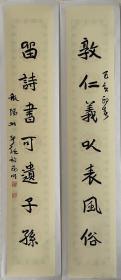 敦仁義以表風俗
留詩書可遺子孫